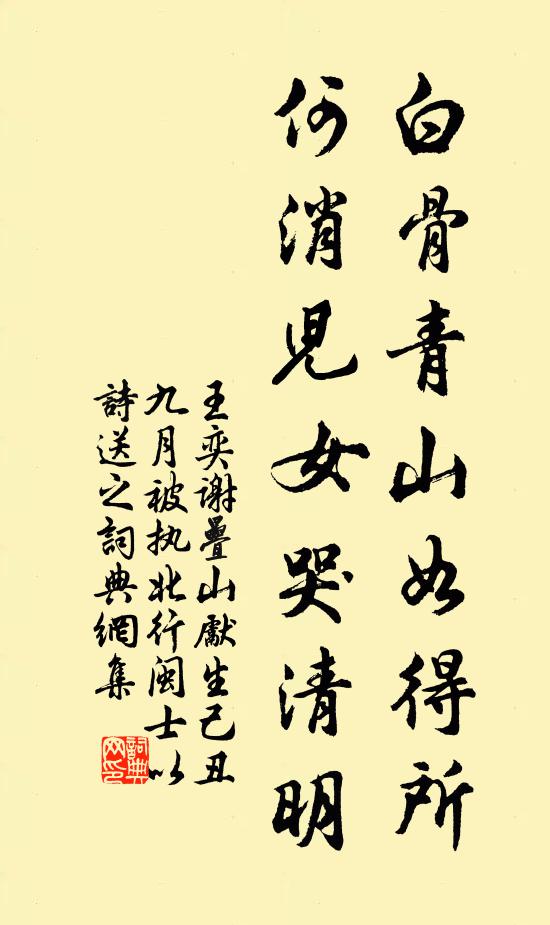 白骨青山如得所
何消児女哭清明
王奕谢疊山獻生己丑
九月被执北行闽士以
詩送之詞典網集
詞典網印